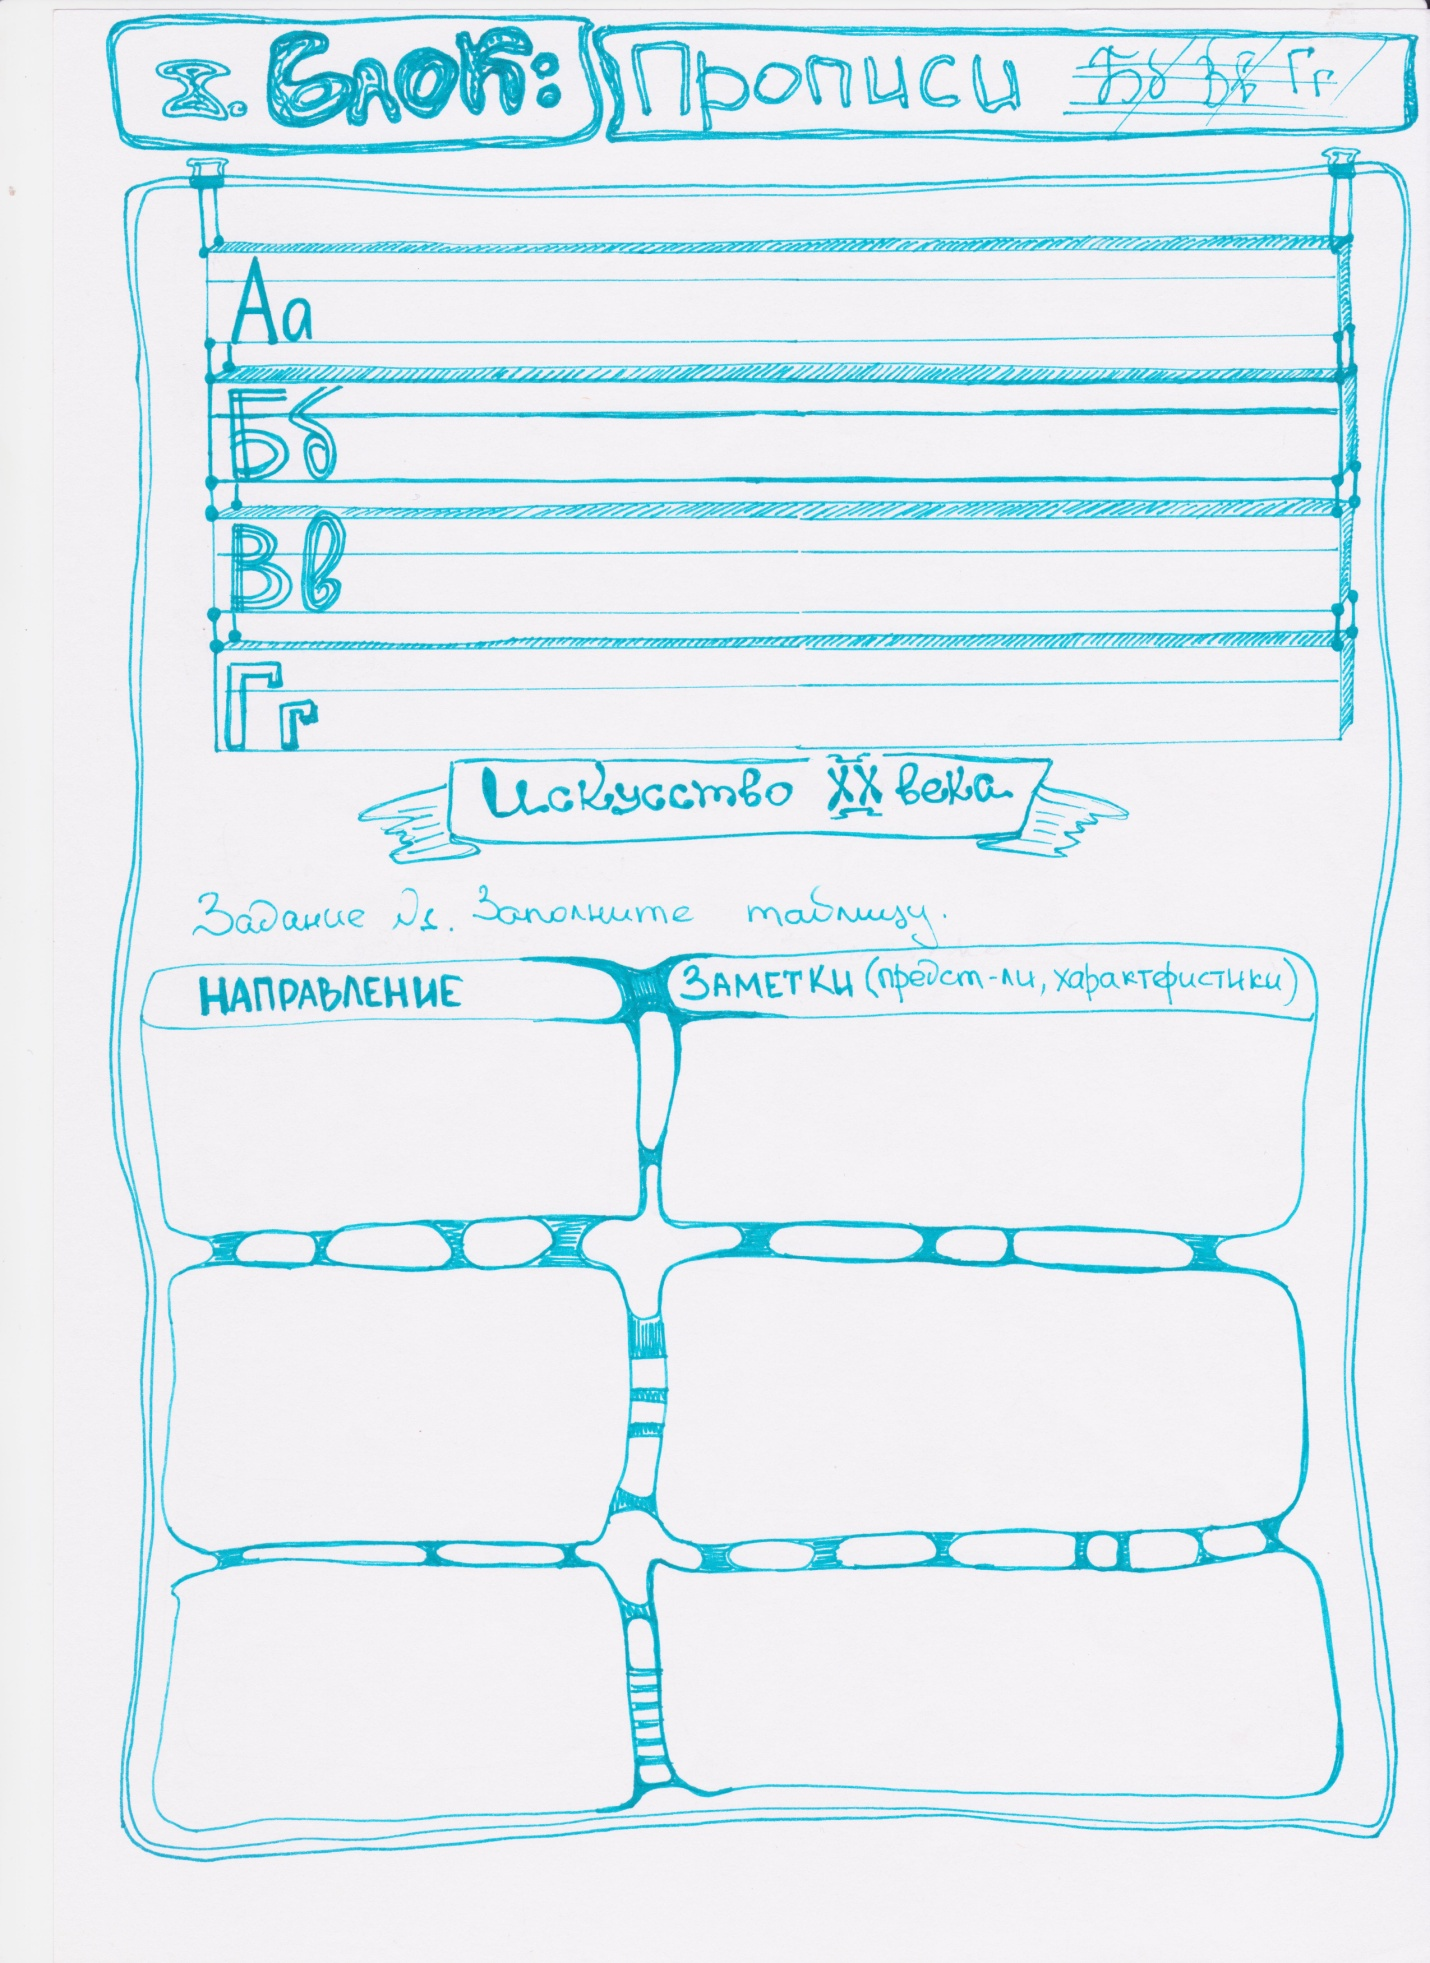 I. Блок: Прописи Бб Вв Гг
Аа
Бб
Вв
Гг
Искусство XX века
Задание №1. Заполните таблицу.
НАПРАВЛЕНИЕ
ЗАМЕТКИ (предст-ли, характеристики)